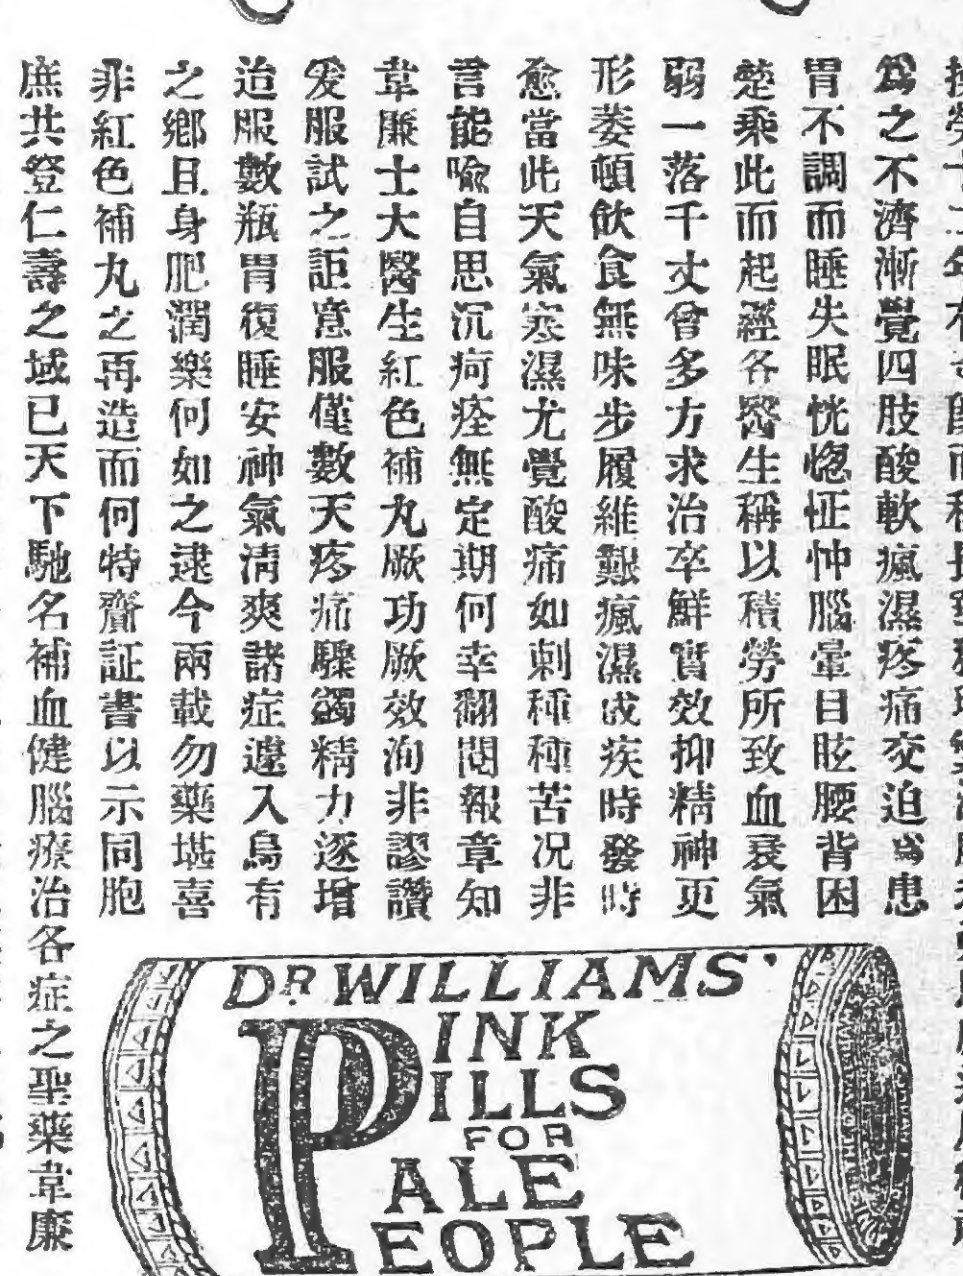 爲之不濟漸覺四肢酸軟瘋濕疼痛交迫爲患
胃不調而睡失眠恍惚怔忡腦暈目眩腰背困
楚乘此而起經各醫生稱以積勞所致血衰氣
弱一落千丈曾多方求治卒鮮實效抑精神更
形萎頓飲食無味步履維艱瘋濕成疾時發時
愈當此天氣寒濕尤覺酸痛如刺種種苦况非
言能喻自思沉疴痊無定期何幸翻閱報章知
韋廉士大醫生紅色補丸厥功厥效洵非謬讚
爰服試之詎意服僅數天疼痛驟蠲精力逐增
迨服數瓶胃復睡安神氣清爽諸症遽入烏有
之鄉且身肥潤樂何如之逮今兩載勿藥堪喜
非紅色補丸之再造而何特齎証書以示同胞
庶共登仁壽之域已天下馳名補血健腦療治各症之聖藥韋廉
DR WILLIAMS'
PINK
PILLS
FOR
PALE
PEOPLE